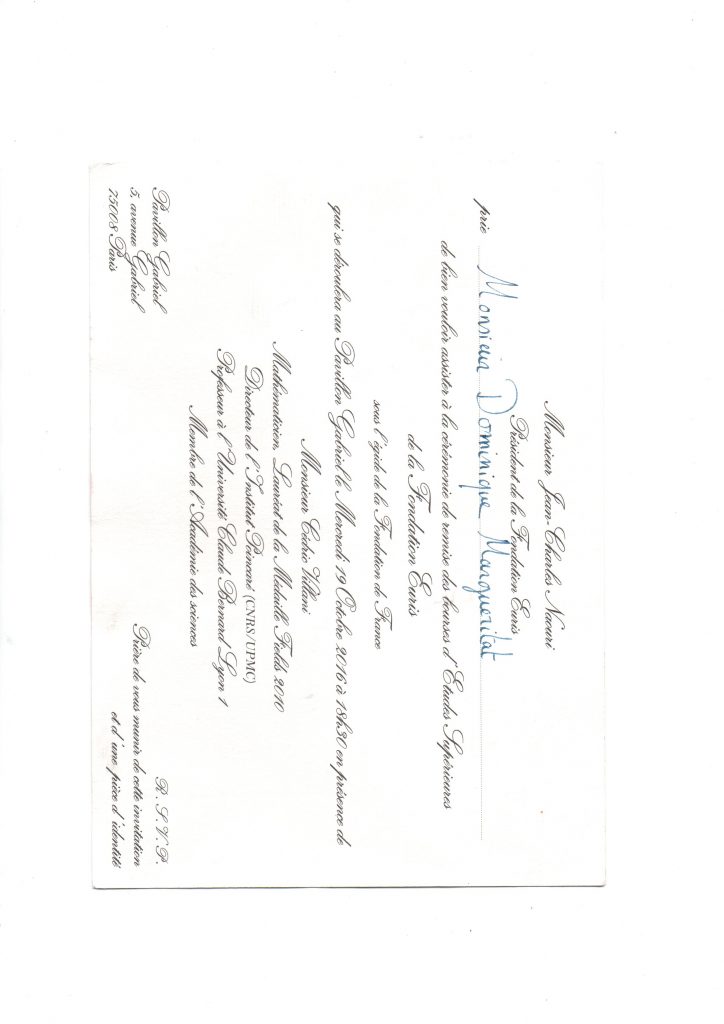 Monsieur Jean-Charles Naouri
Président de la Fondation Euris
prie Monsieur Dominique Margueritat
de bien vouloir assister à la cérémonie de remise des bourses d'Etudes Supérieures
de la Fondation Euris
sous l'égide de la Fondation de France
qui se déroulera au Pavillon Gabriel le Mercredi 19 Octobre 2016 à 18h30 en présence de
Monsieur Cédric Villani
Mathématicien, Lauréat de la Médaille Fields 2010
Directeur de l'Institut Poincaré (CNRS/UPMC)
Professeur à l'Université Claude Bernard Lyon 1
Membre de l'Académie des sciences
Pavillon Gabriel
5, avenue Gabriel
75008 Paris
R. S. V. P.
Prière de vous munir de cette invitation
et d'une pièce d'identité